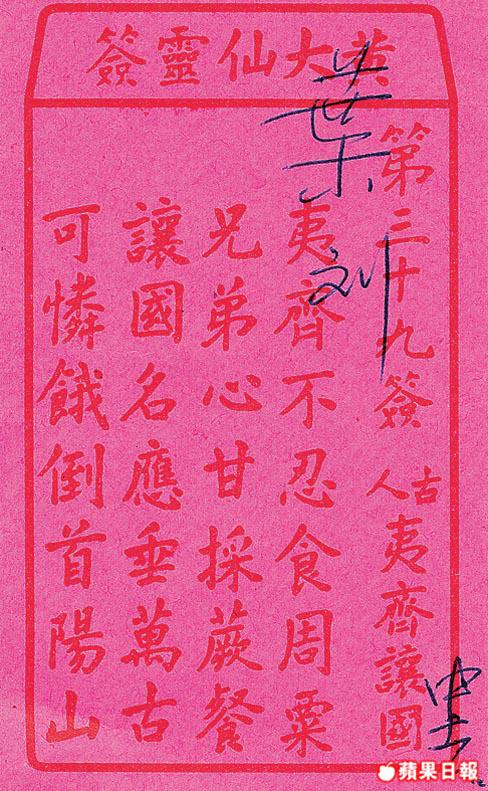 黃大仙靈簽
第三十九簽 古人 夷齊讓國
夷齊不忍食周粟
兄弟心甘採蕨餐
讓國名應垂萬古
可憐餓倒首陽山
葉
刘
蘋果日報